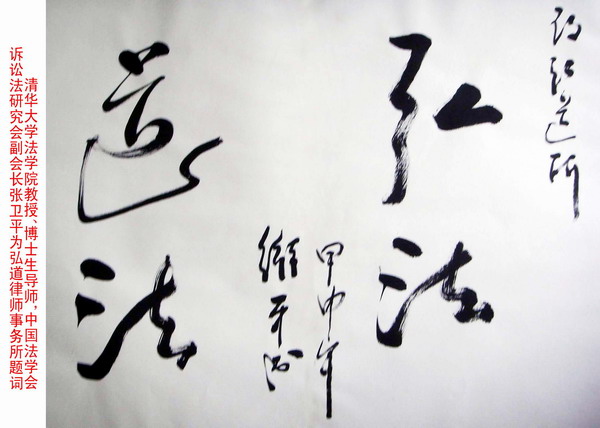 弘道所
弘法
道法
甲申年
衛平
清华大学法学院教授、博士生导师，中国法学会
诉讼法研究会副会长张卫平为弘道律师事务所题词